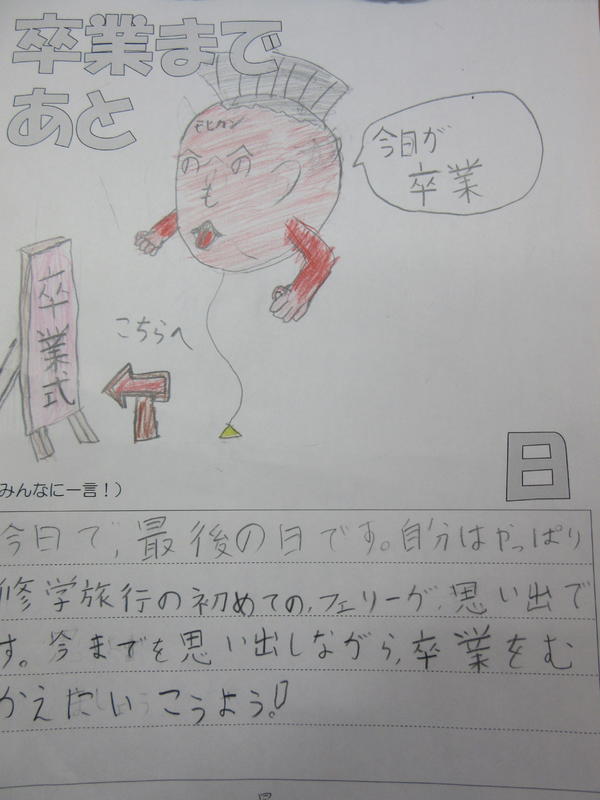 卒業まで
あと
モヒカン
へへの
も
今日が
卒業
卒業式
こちらへ
日
みんなに一言！）
今日で、最後の日です。自分はやっぱり
修学旅行の初めての、フェリーが、思い出で
す。今までを思い出しながら、卒業をむ
かえにいこうよう。